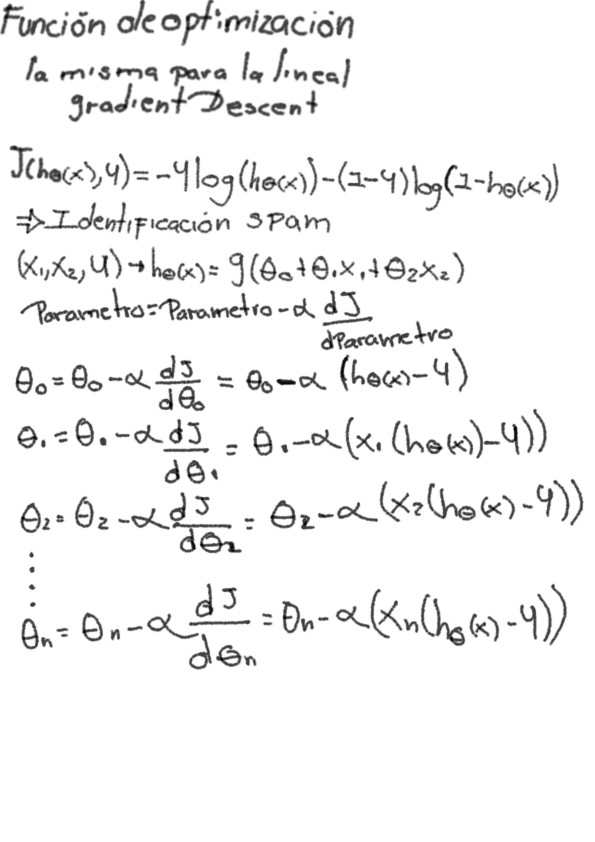 Función de optimización
la misma para la lineal
gradient Descent
J(hθ(x), y) = -y log(hθ(x)) - (1-y) log(1-hθ(x))
⇒ Identificación spam
(x₁, x₂, y) → hθ(x) = g(θ₀ + θ₁x₁ + θ₂x₂)
Parametro = Parametro - α dJ/dParametro
θ₀ = θ₀ - α dJ/dθ₀ = θ₀ - α (hθ(x) - y)
θ₁ = θ₁ - α dJ/dθ₁ = θ₁ - α (x₁ (hθ(x) - y))
θ₂ = θ₂ - α dJ/dθ₂ = θ₂ - α (x₂ (hθ(x) - y))
⋮
θn = θn - α dJ/dθn = θn - α (xn (hθ(x) - y))